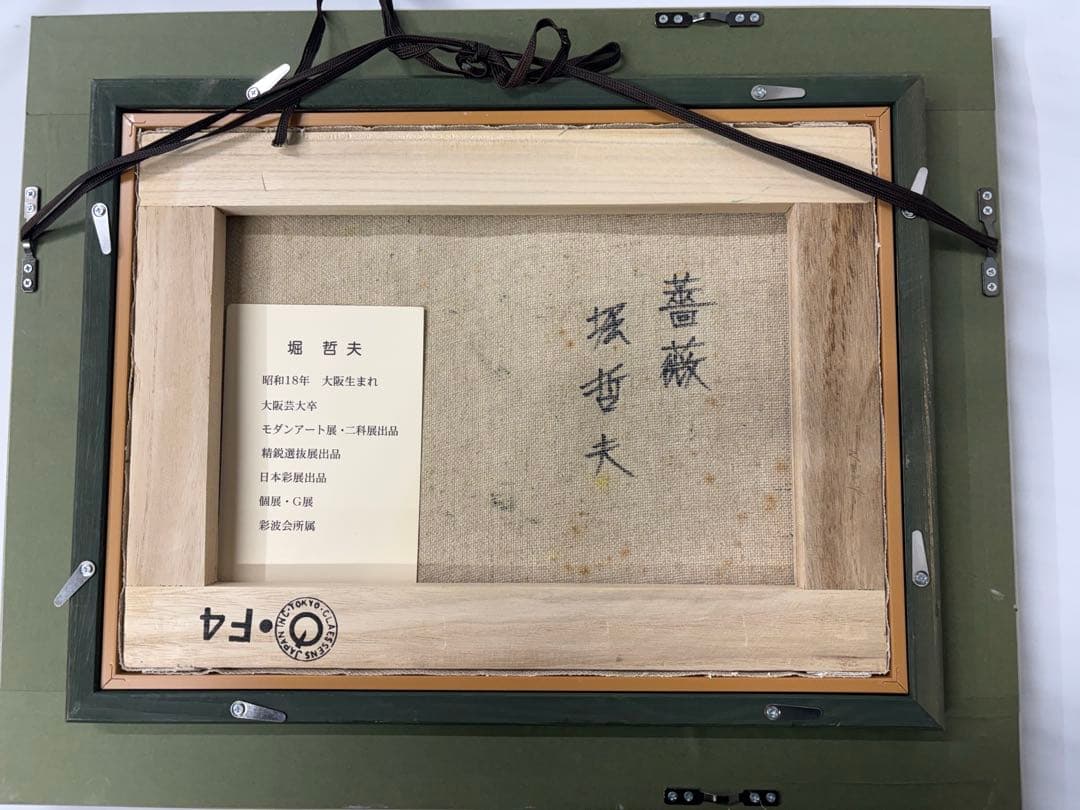 薔薇
堀哲夫
堀 哲夫
昭和18年 大阪生まれ
大阪芸大卒
モダンアート展・二科展出品
精鋭選抜展出品
日本彩展出品
個展・G展
彩波会所属
F4
Q
TOKYO・CLAESSENS JAPAN INC・